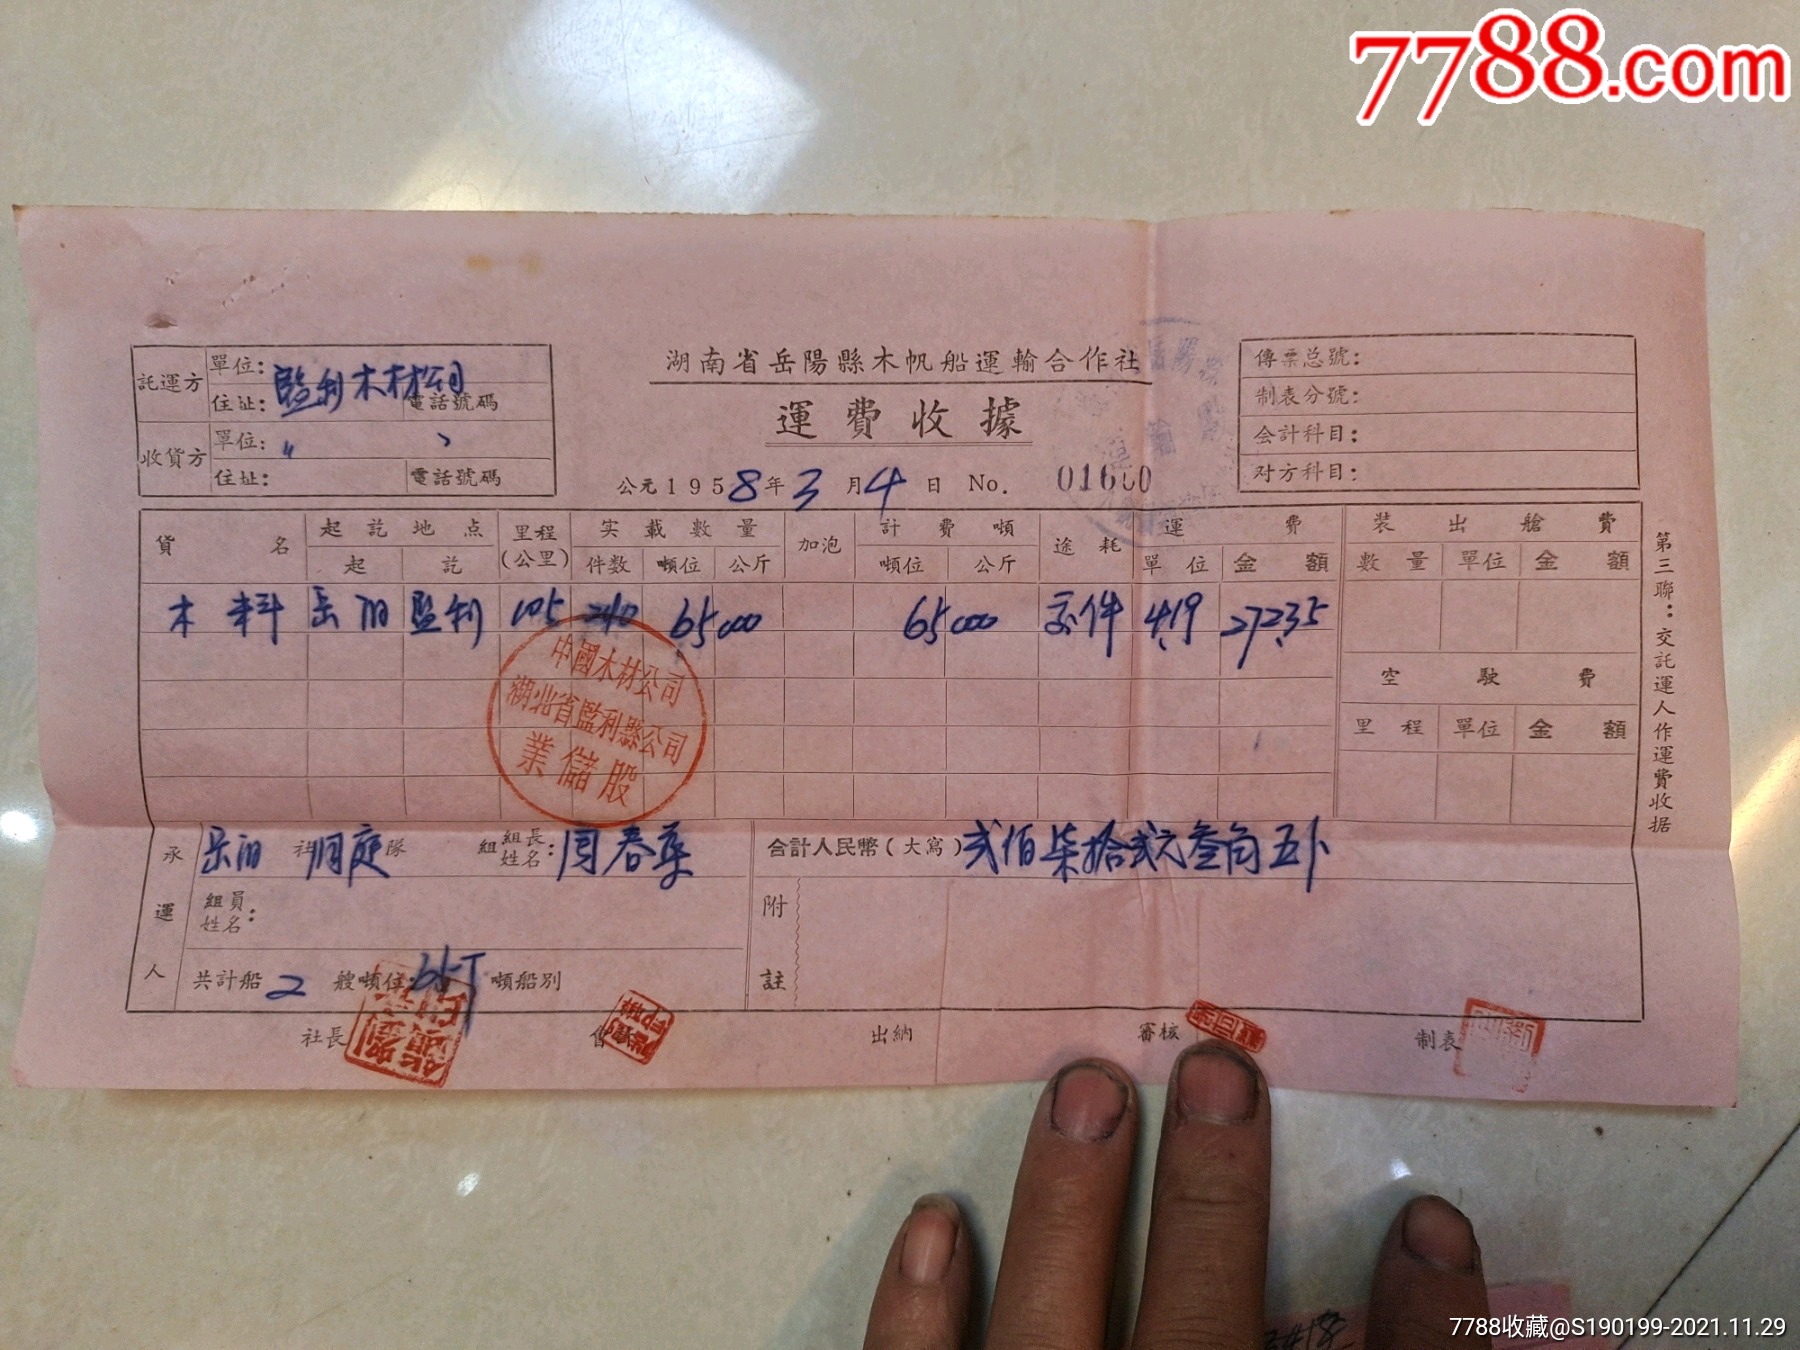 7788.com
湖南省岳陽縣木帆船運輸合作社
運費收據
公元1958年3月4日 No.
託運方 單位: 監利木材公司
住址: 電話號碼
收貨方 單位: 〃
住址: 電話號碼
傳票总號:
制表分號:
会計科目:
对方科目:
貨名 起訖地点 里程(公里) 实載數量 加泡 計費噸 途耗 運費 裝出艙費
起 訖 件数 噸位 公斤 噸位 公斤 單位 金額 數量 單位 金額
木料 岳阳 監利 105 240 65 000 65 000 交件 4.19 272.35
空駛費
里程 單位 金額
中國木材公司
湖北省監利縣公司
業儲股
承運人 岳阳 社 洞庭 隊 組 組長姓名: 周春
合計人民幣(大寫) 弍佰柒拾弍元叁角五分
組員姓名:
附註
共計船 2 艘噸位: 65T 噸船別
社長 會 出納 審核 制表
第三聯:交託運人作運費收据
7788收藏@S190199-2021.11.29